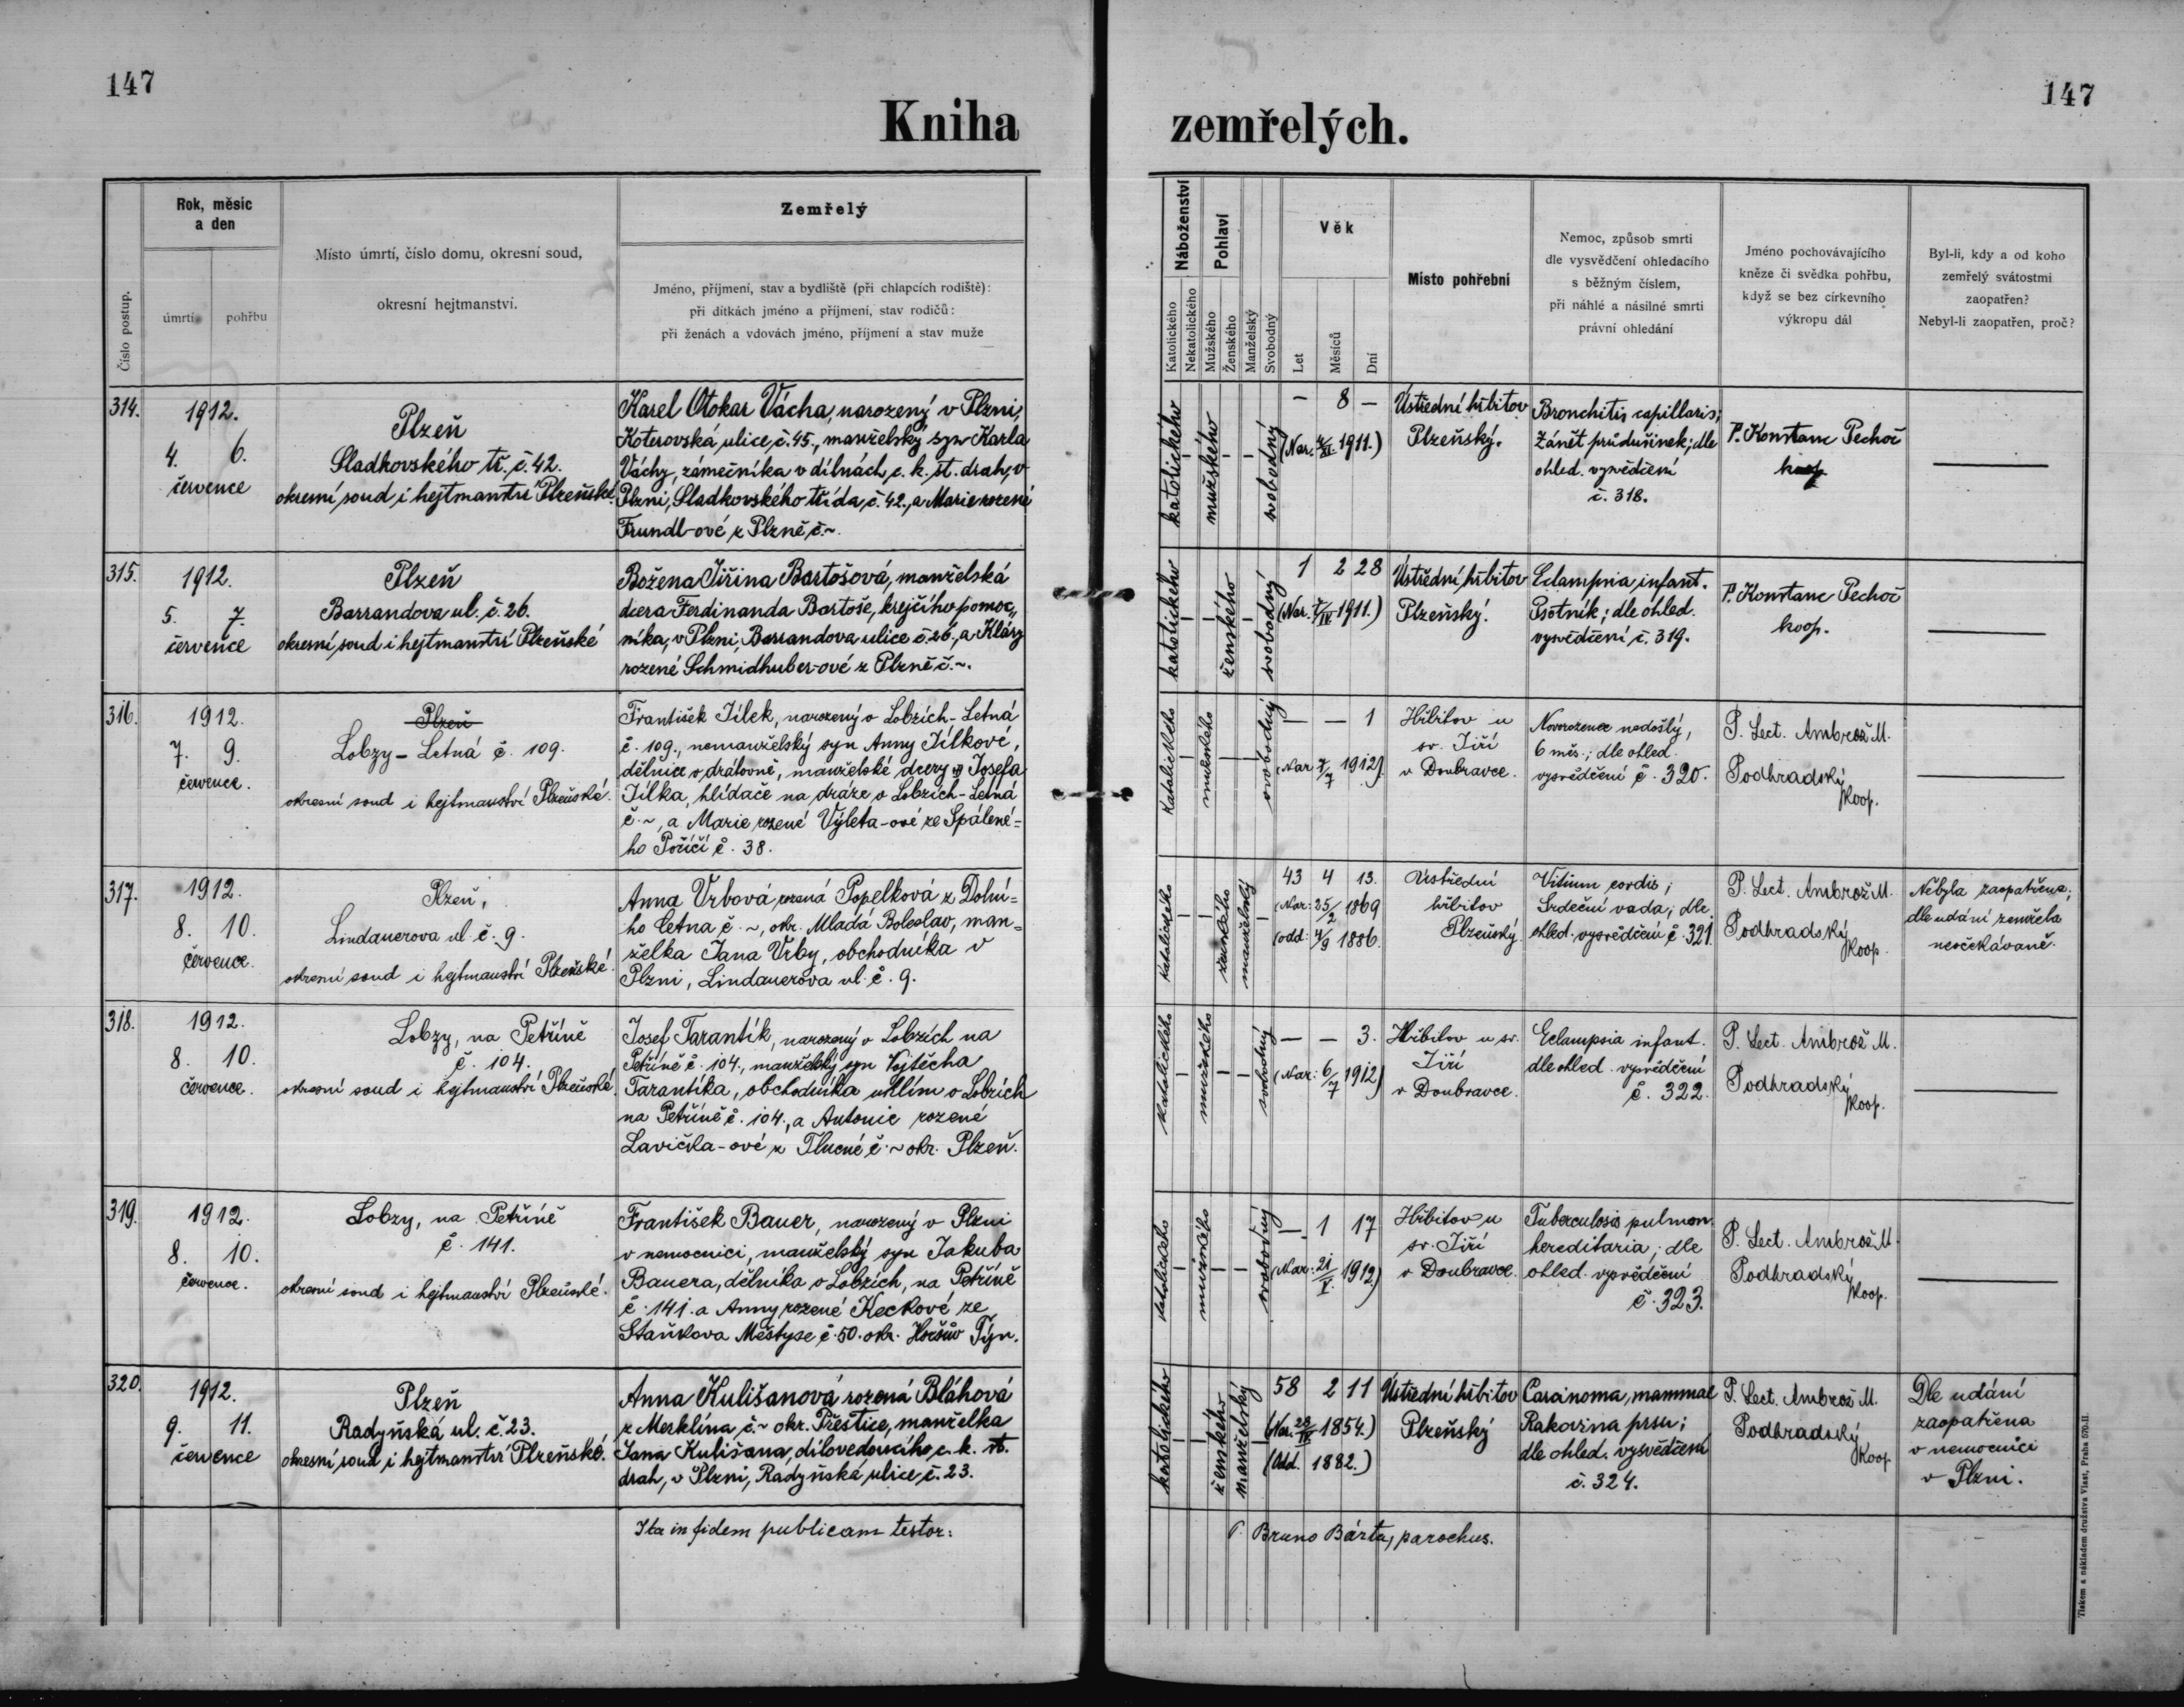 147
147
Kniha
zemřelých.
Číslo postup.
Rok, měsíc
a den
úmrtí
pohřbu
Místo úmrtí, číslo domu, okresní soud,
okresní hejtmanství.
Zemřelý
Jméno, příjmení, stav a bydliště (při chlapcích rodiště):
při dítkách jméno a příjmení, stav rodičů:
při ženách a vdovách jméno, příjmení a stav muže
Náboženství
Katolického
Nekatolického
Pohlaví
Mužského
Ženského
Manželský
Svobodný
Věk
Let
Měsíců
Dní
Místo pohřební
Nemoc, způsob smrti
dle vysvědčení ohledacího
s běžným číslem,
při náhlé a násilné smrti
právní ohledání
Jméno pochovávajícího
kněze či svědka pohřbu,
když se bez církevního
výkropu dál
Byl-li, kdy a od koho
zemřelý svátostmi
zaopatřen?
Nebyl-li zaopatřen, proč?
314.
1912.
4. 6.
července
Plzeň
Sladkovského tř. č. 42.
okresní soud i hejtmanství Plzeňské.
Karel Otokar Vácha, narozený v Plzni,
Koterovská ulice, č. 45., manželský syn Karla
Váchy, zámečníka v dílnách c. k. st. drah, v
Plzni, Sladkovského třída, č. 42., a Marie rozené
Frundl-ové z Plzně č. ~.
katolického
–
mužského
–
–
svobodný
– 8 –
(Nar. 4/XI 1911.)
Ústřední hřbitov
Plzeňský.
Bronchitis capillaris;
Zánět průdušinek; dle
ohled. vysvědčení
č. 318.
P. Konstanc Pechoč
koop.
315.
1912.
5. 7.
července
Plzeň
Barrandova ul. č. 26.
okresní soud i hejtmanství Plzeňské
Božena Jiřina Bartošová, manželská
dcera Ferdinanda Bartoše, krejčího pomoc„
níka, v Plzni, Barrandova ulice č. 26, a Kláry
rozené Schmidhuber-ové z Plzně č. ~.
katolického
–
–
ženského
–
svobodný
1 2 28
(Nar. 7/IV 1911.)
Ústřední hřbitov
Plzeňský.
Eclampsia infant.
Psotník; dle ohled.
vysvědčení č. 319.
P. Konstanc Pechoč
koop.
316.
1912.
7. 9.
července.
Plzeň
Lobzy – Letná č. 109.
okresní soud i hejtmanství Plzeňské.
František Jílek, narozený v Lobzích – Letná
č. 109., nemanželský syn Anny Jílkové,
dělnice v drátovně, manželské dcery Josefa
Jílka, hlídače na dráze v Lobzích – Letná
č. ~, a Marie rozené Výleta-ové ze Spálené=
ho Poříčí č. 38.
katolického
–
mužského
–
–
svobodný
– – 1
(Nar. 7/7 1912).
Hřbitov u
sv. Jiří
v Doubravce.
Novorozenec nedošlý,
6 měs.; dle ohled.
vysvědčení č. 320.
P. Lect. Ambrož M.
Podhradský
koop.
317.
1912.
8. 10.
července.
Plzeň,
Lindauerova ul. č. 9.
okresní soud i hejtmanství Plzeňské.
Anna Vrbová rozená Popelková z Dolní=
ho Cetna č. ~, okr. Mladá Boleslav, man=
želka Jana Vrby, obchodníka v
Plzni, Lindauerova ul. č. 9.
katolického
–
–
ženského
manželský
–
43 4 13.
(Nar: 25/2 1869
(odd: 4/9 1886.
Ústřední
hřbitov
Plzeňský
Vitium cordis;
Srdeční vada; dle
ohled. vysvědčení č. 321
P. Lect. Ambrož M.
Podhradský
koop.
Nebyla zaopatřena;
dle udání zemřela
neočekávaně.
318.
1912.
8. 10.
července.
Lobzy, na Petříně
č. 104.
okresní soud i hejtmanství Plzeňské.
Josef Tarantík, narozený v Lobzích na
Petříně č. 104., manželský syn Vojtěcha
Tarantíka, obchodníka uhlím v Lobzích
na Petříně č. 104., a Antonie rozené
Lavička-ové z Tlucné č. ~ okr. Plzeň.
katolického
–
mužského
–
–
svobodný
– – 3.
(Nar: 6/7 1912)
Hřbitov u sv.
Jiří
v Doubravce.
Eclampsia infant.
dle ohled. vysvědčení
č. 322.
P. Lect. Ambrož M.
Podhradský
koop.
319.
1912.
8. 10.
července.
Lobzy, na Petříně
č. 141.
okresní soud i hejtmanství Plzeňské.
František Bauer, narozený v Plzni
v nemocnici, manželský syn Jakuba
Bauera, dělníka v Lobzích, na Petříně
č. 141. a Anny rozené Keckové ze
Staňkova Městyse č. 50. okr. Horšův Týn.
katolického
–
mužského
–
–
svobodný
– 1 17
(Nar: 21/V. 1912)
Hřbitov u
sv. Jiří
v Doubravce.
Tuberculosis pulmon.
hereditaria; dle
ohled. vysvědčení
č. 323.
P. Lect. Ambrož M.
Podhradský
koop.
320.
1912.
9. 11.
července
Plzeň
Radyňská ul. č. 23.
okresní soud i hejtmanství Plzeňské.
Anna Kulišanová rozená Bláhová
z Merklína, č. ~ okr. Přeštice, manželka
Jana Kulišana, dílovedoucího c. k. st.
drah, v Plzni, Radyňská ulice, č. 23.
katolického
–
–
ženského
manželský
58 2 11
(Nar. 28/IV 1854.)
(Odd. 1882.)
Ústřední hřbitov
Plzeňský
Carcinoma, mammae
Rakovina prsu;
dle ohled. vysvědčení
č. 324.
P. Lect. Ambrož M.
Podhradský
koop
Dle udání
zaopatřena
v nemocnici
v Plzni.
Ita in fidem publicam testor:
P. Bruno Bárta, parochus.
Tiskem a nákladem družstva Vlast, Praha 570-II.